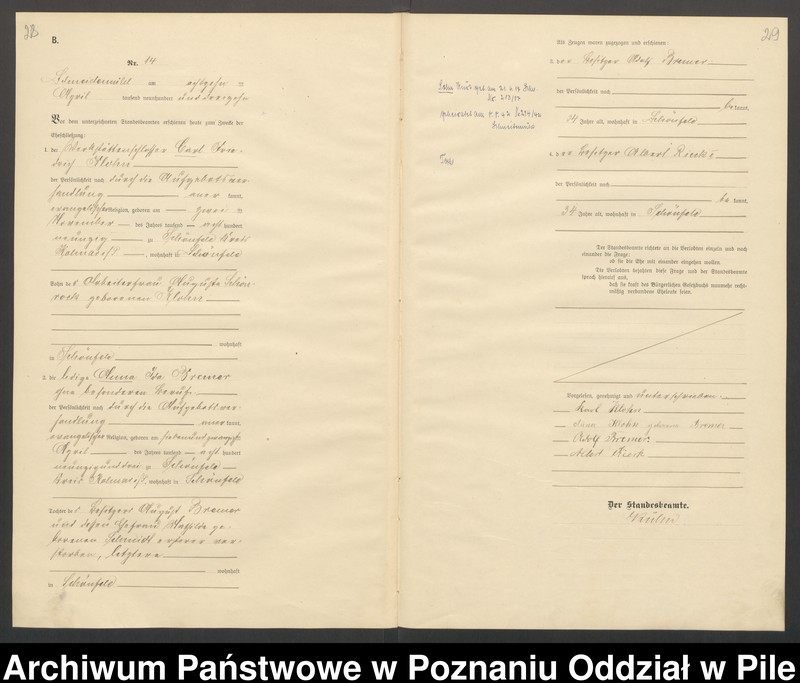 28
B.
Nr. 14
Schneidemühl am achtzehn ten
April tausend neunhundert und dreizehn
Vor dem unterzeichneten Standesbeamten erschienen heute zum Zwecke der
Eheschließung:
1. der Werkstättenschlosser Carl Frie-
drich Klohn
der Persönlichkeit nach durch die Aufgebotsver-
handlung aner kannt,
evangelischer Religion, geboren am zwei ten
November des Jahres tausend acht hundert
neunzig zu Schönfeld Kreis
Kolmar i/P., wohnhaft in Schönfeld
Sohn der Arbeiterfrau Auguste
geborenen Klohn
wohnhaft
in Schönfeld
2. die ledige Anna Ida Bremer
ohne besonderen Beruf
der Persönlichkeit nach durch die Aufgebotsver-
handlung aner kannt,
evangelischer Religion, geboren am siebenundzwanzigsten
April des Jahres tausend acht hundert
neunzig zu Schönfeld
Kreis Kolmar i/P., wohnhaft in Schönfeld
Tochter des Besitzers August Bremer
und dessen Ehefrau ge-
borenen Schmidt ersterer ver-
storben, letztere
wohnhaft
in Schönfeld
29
Als Zeugen waren zugezogen und erschienen:
3. der Besitzer Adolf Bremer
der Persönlichkeit nach
be kannt,
34 Jahre alt, wohnhaft in Schönfeld
4. der Besitzer Albert Rieck
der Persönlichkeit nach
be kannt,
34 Jahre alt, wohnhaft in Schönfeld
Der Standesbeamte richtete an die Verlobten einzeln und nach
einander die Frage:
ob sie die Ehe mit einander eingehen wollen.
Die Verlobten bejahten diese Frage und der Standesbeamte
sprach hierauf aus,
daß sie kraft des Bürgerlichen Gesetzbuchs nunmehr recht-
mäßig verbundene Eheleute seien.
Vorgelesen, genehmigt und unterschrieben:
Karl Klohn
Anna Klohn geborene Bremer
Adolf Bremer
Albert Rieck
Der Standesbeamte.
Archiwum Państwowe w Poznaniu Oddział w Pile